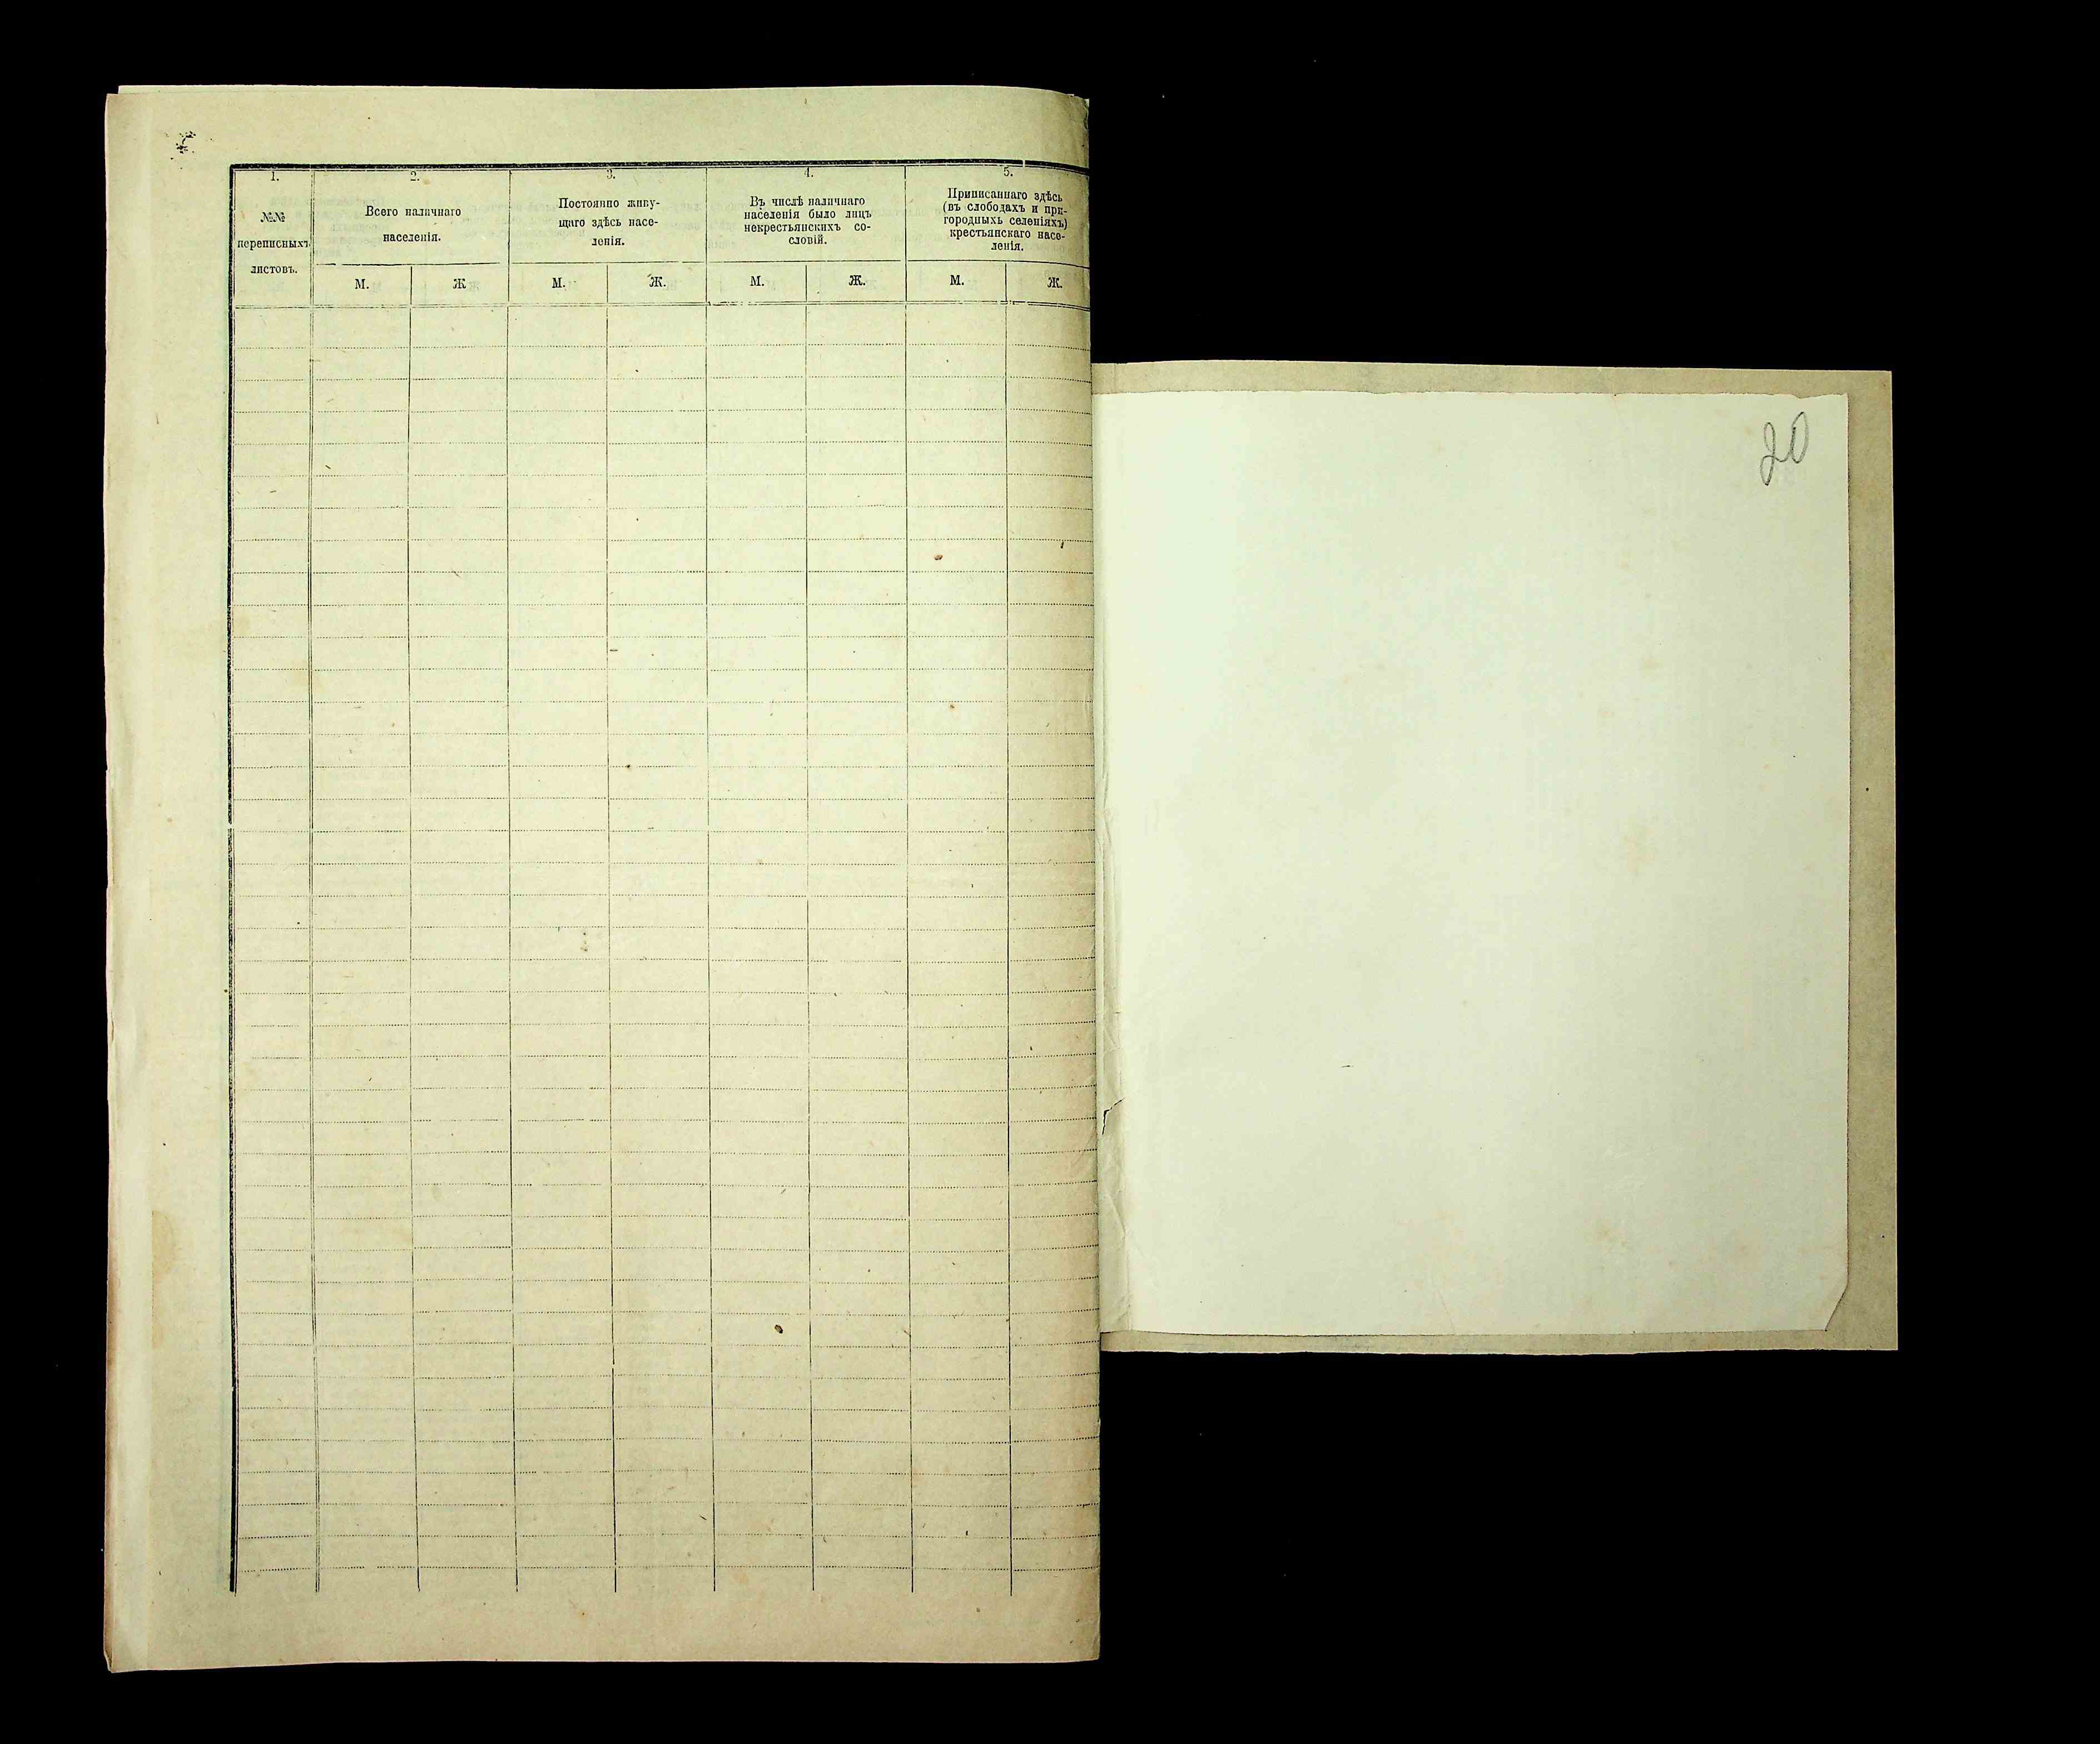 1.
№№
переписныхъ
листовъ.
2.
Всего наличнаго
населенія.
М.
Ж
3.
Постоянно живу-
щаго здѣсь насе-
ленія.
М.
Ж.
4.
Въ числѣ наличнаго
населенія было лицъ
некрестьянскихъ со-
словій.
М.
Ж.
5.
Приписаннаго здѣсь
(въ слободахъ и при-
городныхъ селеніяхъ)
крестьянскаго насе-
ленія.
М.
Ж.
20